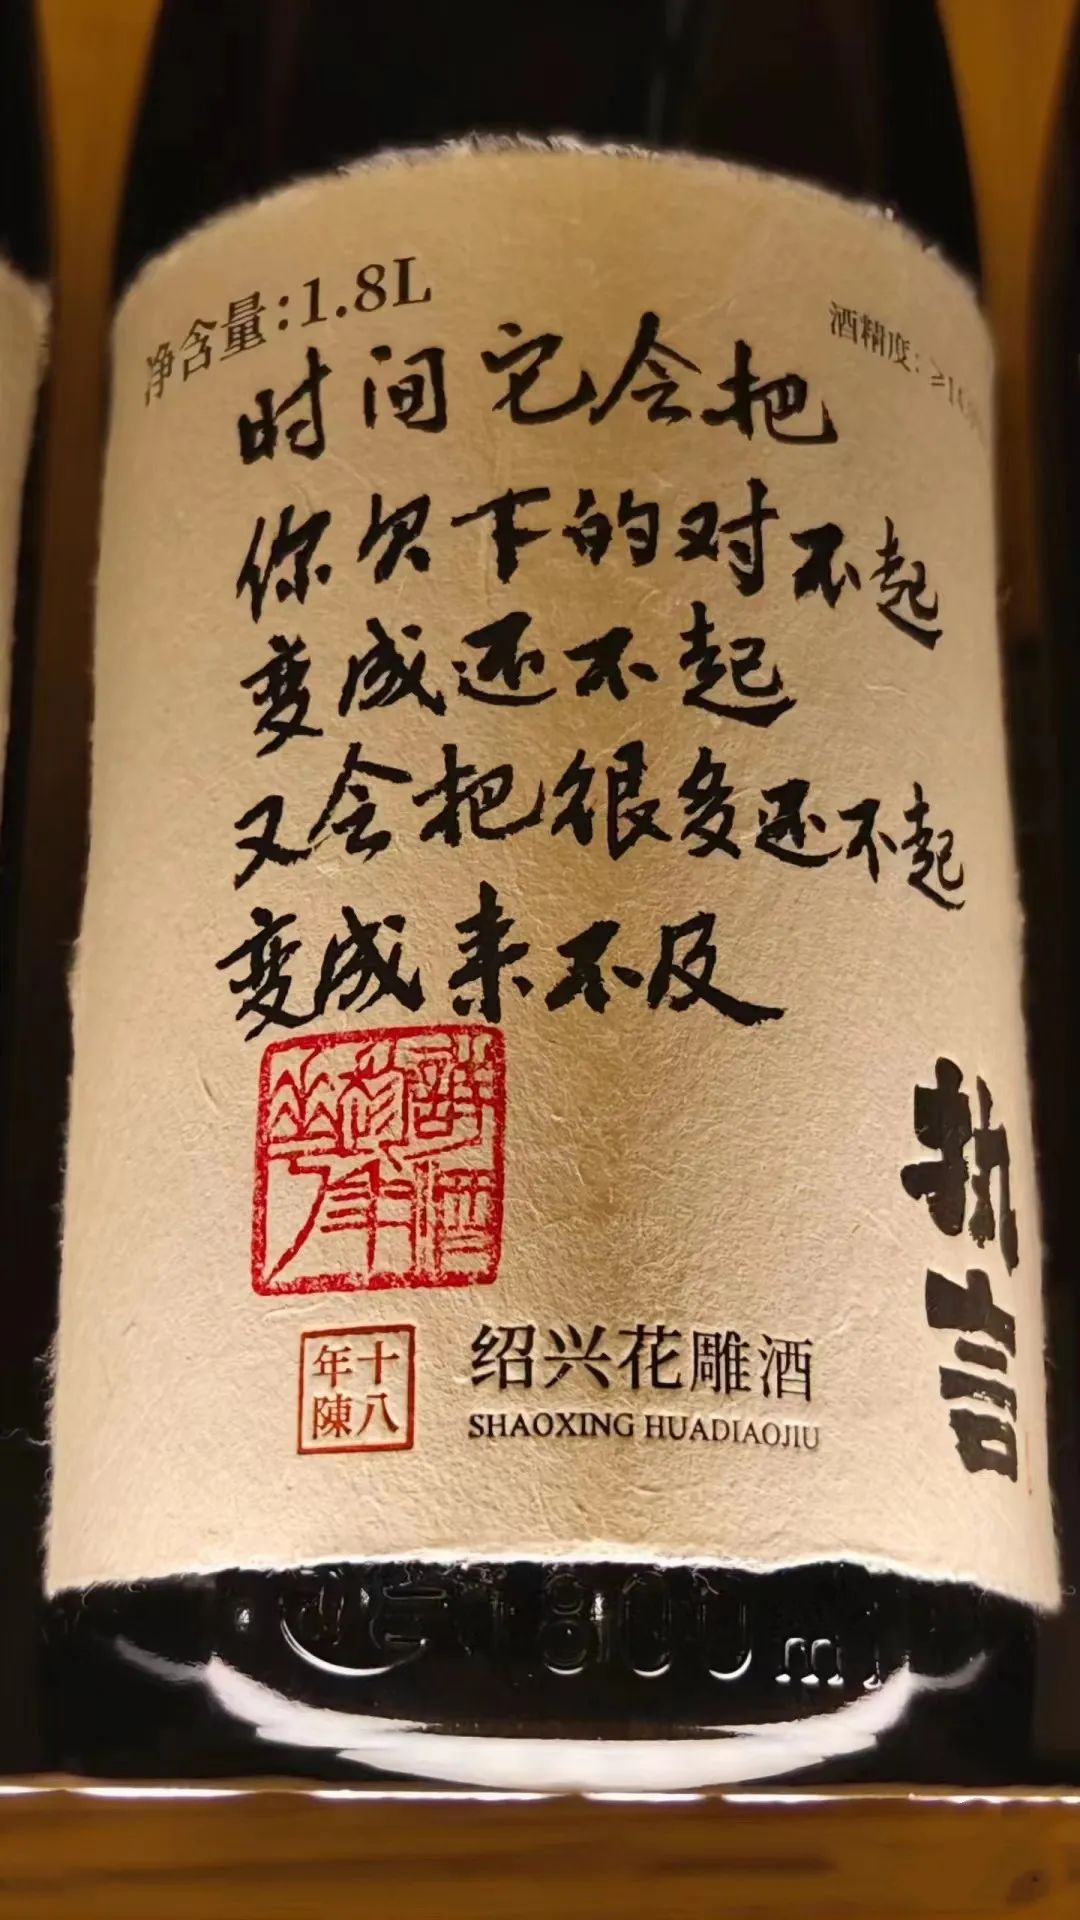 净含量:1.8L
酒精度:≤14
时间它会把
你欠下的对不起
变成还不起
又会把很多还不起
变成来不及
诗酒
年华
十八
年陳
绍兴花雕酒
SHAOXING HUADIAOJIU
执言
1800ml